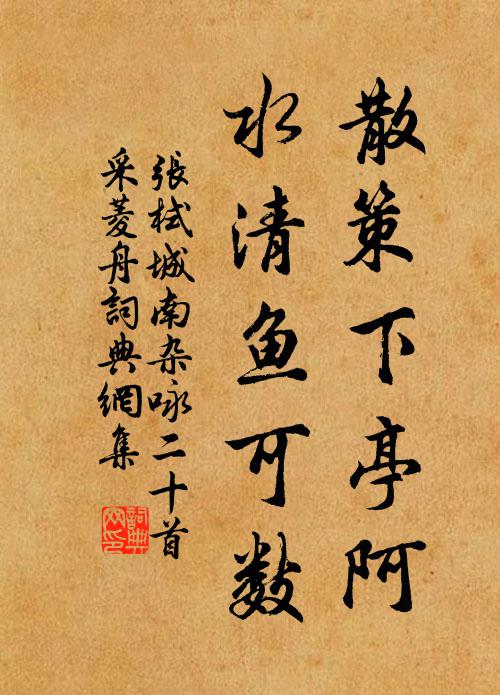 散策下亭阿
水清鱼可数
張栻城南杂咏二十首
采菱舟詞典網集
詞典网印